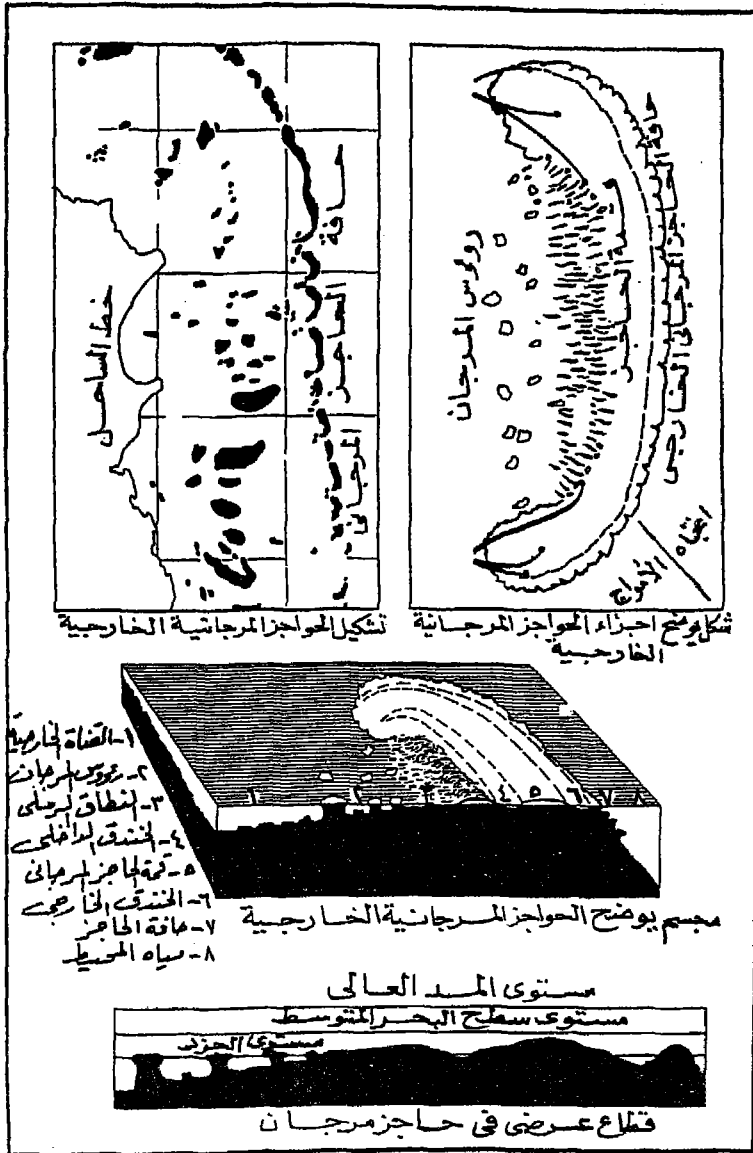 حافة الحاجز المرجاني الخارجي
قمة الحاجز
رووس المرجان
اتجاه الأمواج
شكل يوضح اجزاء الحواجز المرجانية
الخارجية
حافة
الحاجز
المرجاني
خط الساحل
تشكيل الحواجز المرجانية الخارجية
١ ٤ ٥ ٦ ٧ ٨
١- القناة الخارجية
٢- رووس المرجان
٣- النطاق الرملى
٤- الخندق الداخلى
٥- قمة الحاجز المرجانى
٦- الخندق الخارجى
٧- حافة الحاجز
٨- مياه المحيط
مجسم يوضح الحواجز المرجانية الخارجية
مستوى المد العالى
مستوى سطح البحر المتوسط
مستوى الجزر
قطاع عرضى فى حاجز مرجان